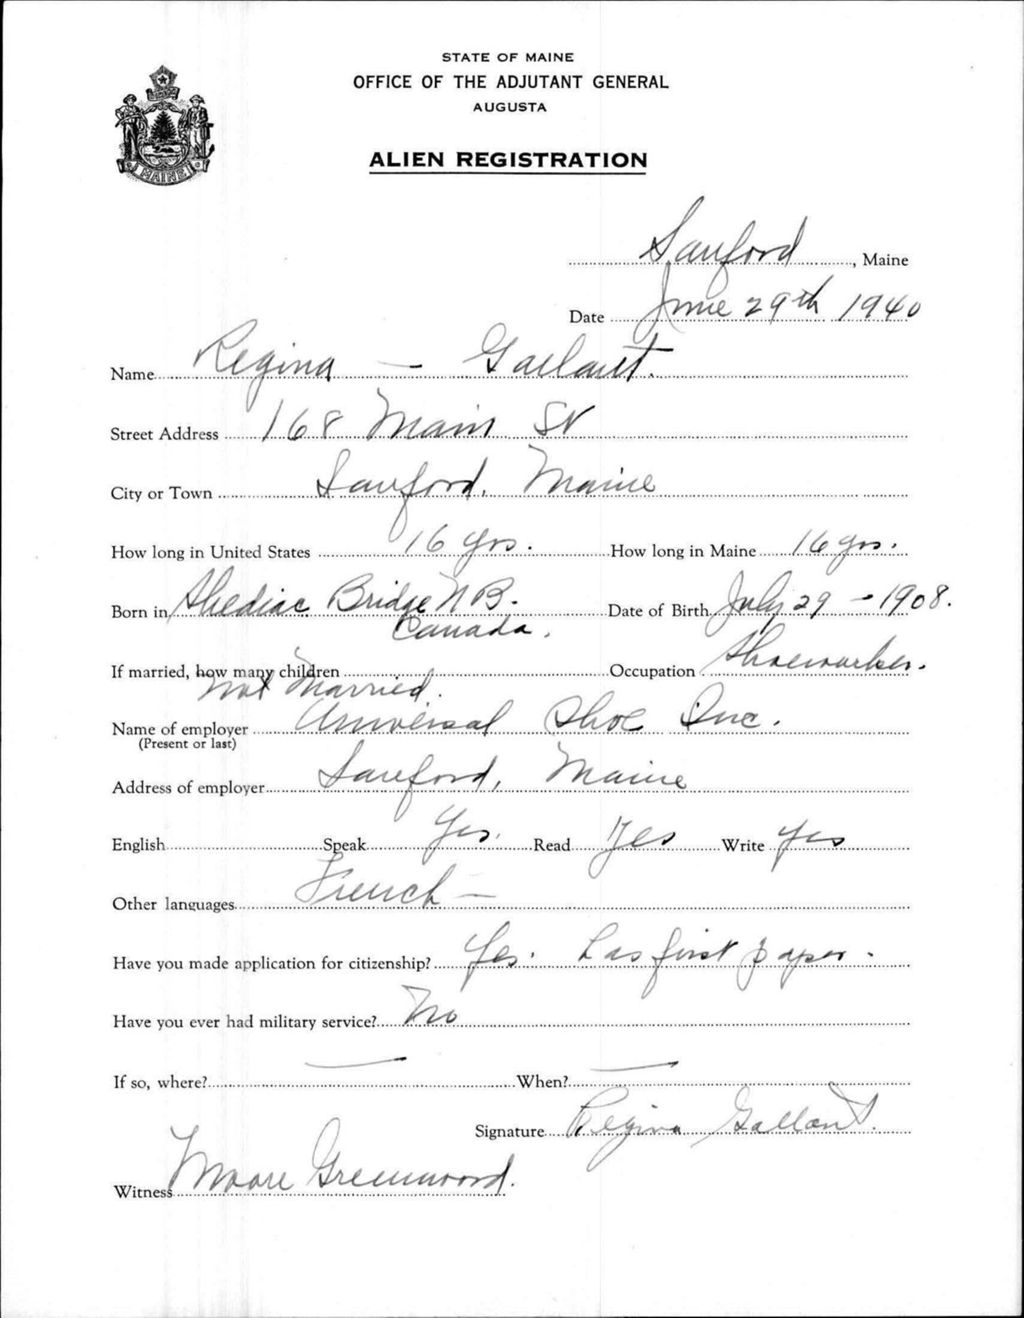 STATE OF MAINE
OFFICE OF THE ADJUTANT GENERAL
AUGUSTA
MAINE
ALIEN REGISTRATION
Sanford, Maine
Date June 29th 1940
Name Regina - Gallant.
Street Address 168 Main St
City or Town Sanford, Maine
How long in United States 16 yrs. How long in Maine 16 yrs.
Born in Shediac Bridge N B. Date of Birth July 29 - 1908.
Canada.
If married, how many children Occupation Shoeworker.
Not Married.
Name of employer Universal Shoe Inc.
(Present or last)
Address of employer Sanford, Maine
English Speak Yes. Read Yes Write Yes
Other languages French -
Have you made application for citizenship? Yes. Has first paper.
Have you ever had military service? No
If so, where? — When? —
Signature Regina Gallant.
Witness Moore Greenwood.